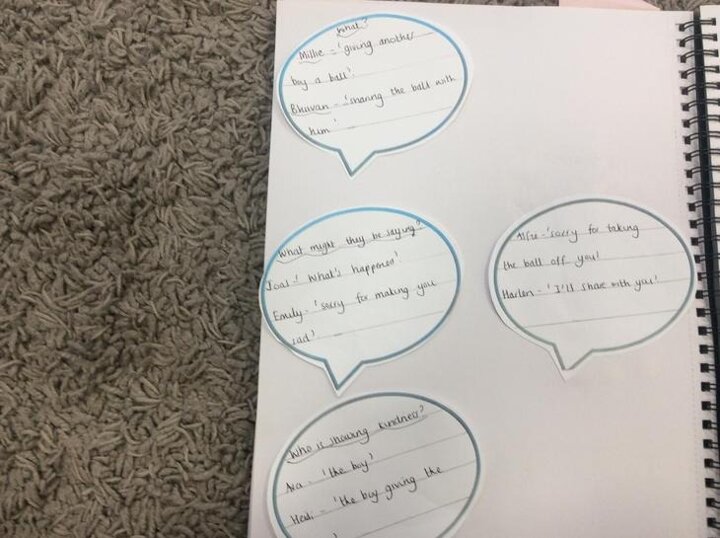 What?
Millie - 'giving another
boy a ball'.
Bhavan - 'sharing the ball with
him'
What might they be saying?
'What's happened'
Emily - 'sorry for making you
sad'
Alfie - 'sorry for taking
the ball off you'
Harlen - 'I'll share with you'
Who is showing kindness?
Ava - 'the boy'
Heidi - 'the boy giving the